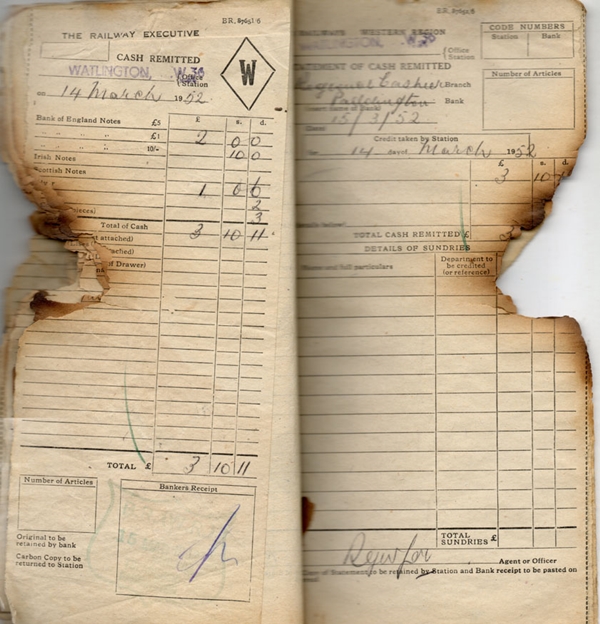 B.R. 87651/6
THE RAILWAY EXECUTIVE
CASH REMITTED
WATLINGTON, W.36
(Office Station
on 14 March 1952
W
£ s. d.
Bank of England Notes £5
" " " £1 2 0 0
" " " 10/- 10 0
Irish Notes
Scottish Notes
1 0 0
2
3
Total of Cash 3 10 11
attached)
of Drawer)
TOTAL £ 3 10 11
Number of Articles
Bankers Receipt
Original to be
retained by bank
Carbon Copy to be
returned to Station
B.R. 87651/6
RAILWAYS WESTERN REGION
WATLINGTON, W.36
(Office Station
STATEMENT OF CASH REMITTED
Regional Cashier Branch
Paddington Bank
15/3/52
Credit taken by Station
14 March 1952
£ s. d.
3 10
TOTAL CASH REMITTED £ 3
DETAILS OF SUNDRIES
Name and full particulars
Department to
be credited
(or reference)
TOTAL
SUNDRIES £
Agent or Officer
Copy of Statement to be retained by Station and Bank receipt to be pasted on
CODE NUMBERS
Station Bank
Number of Articles